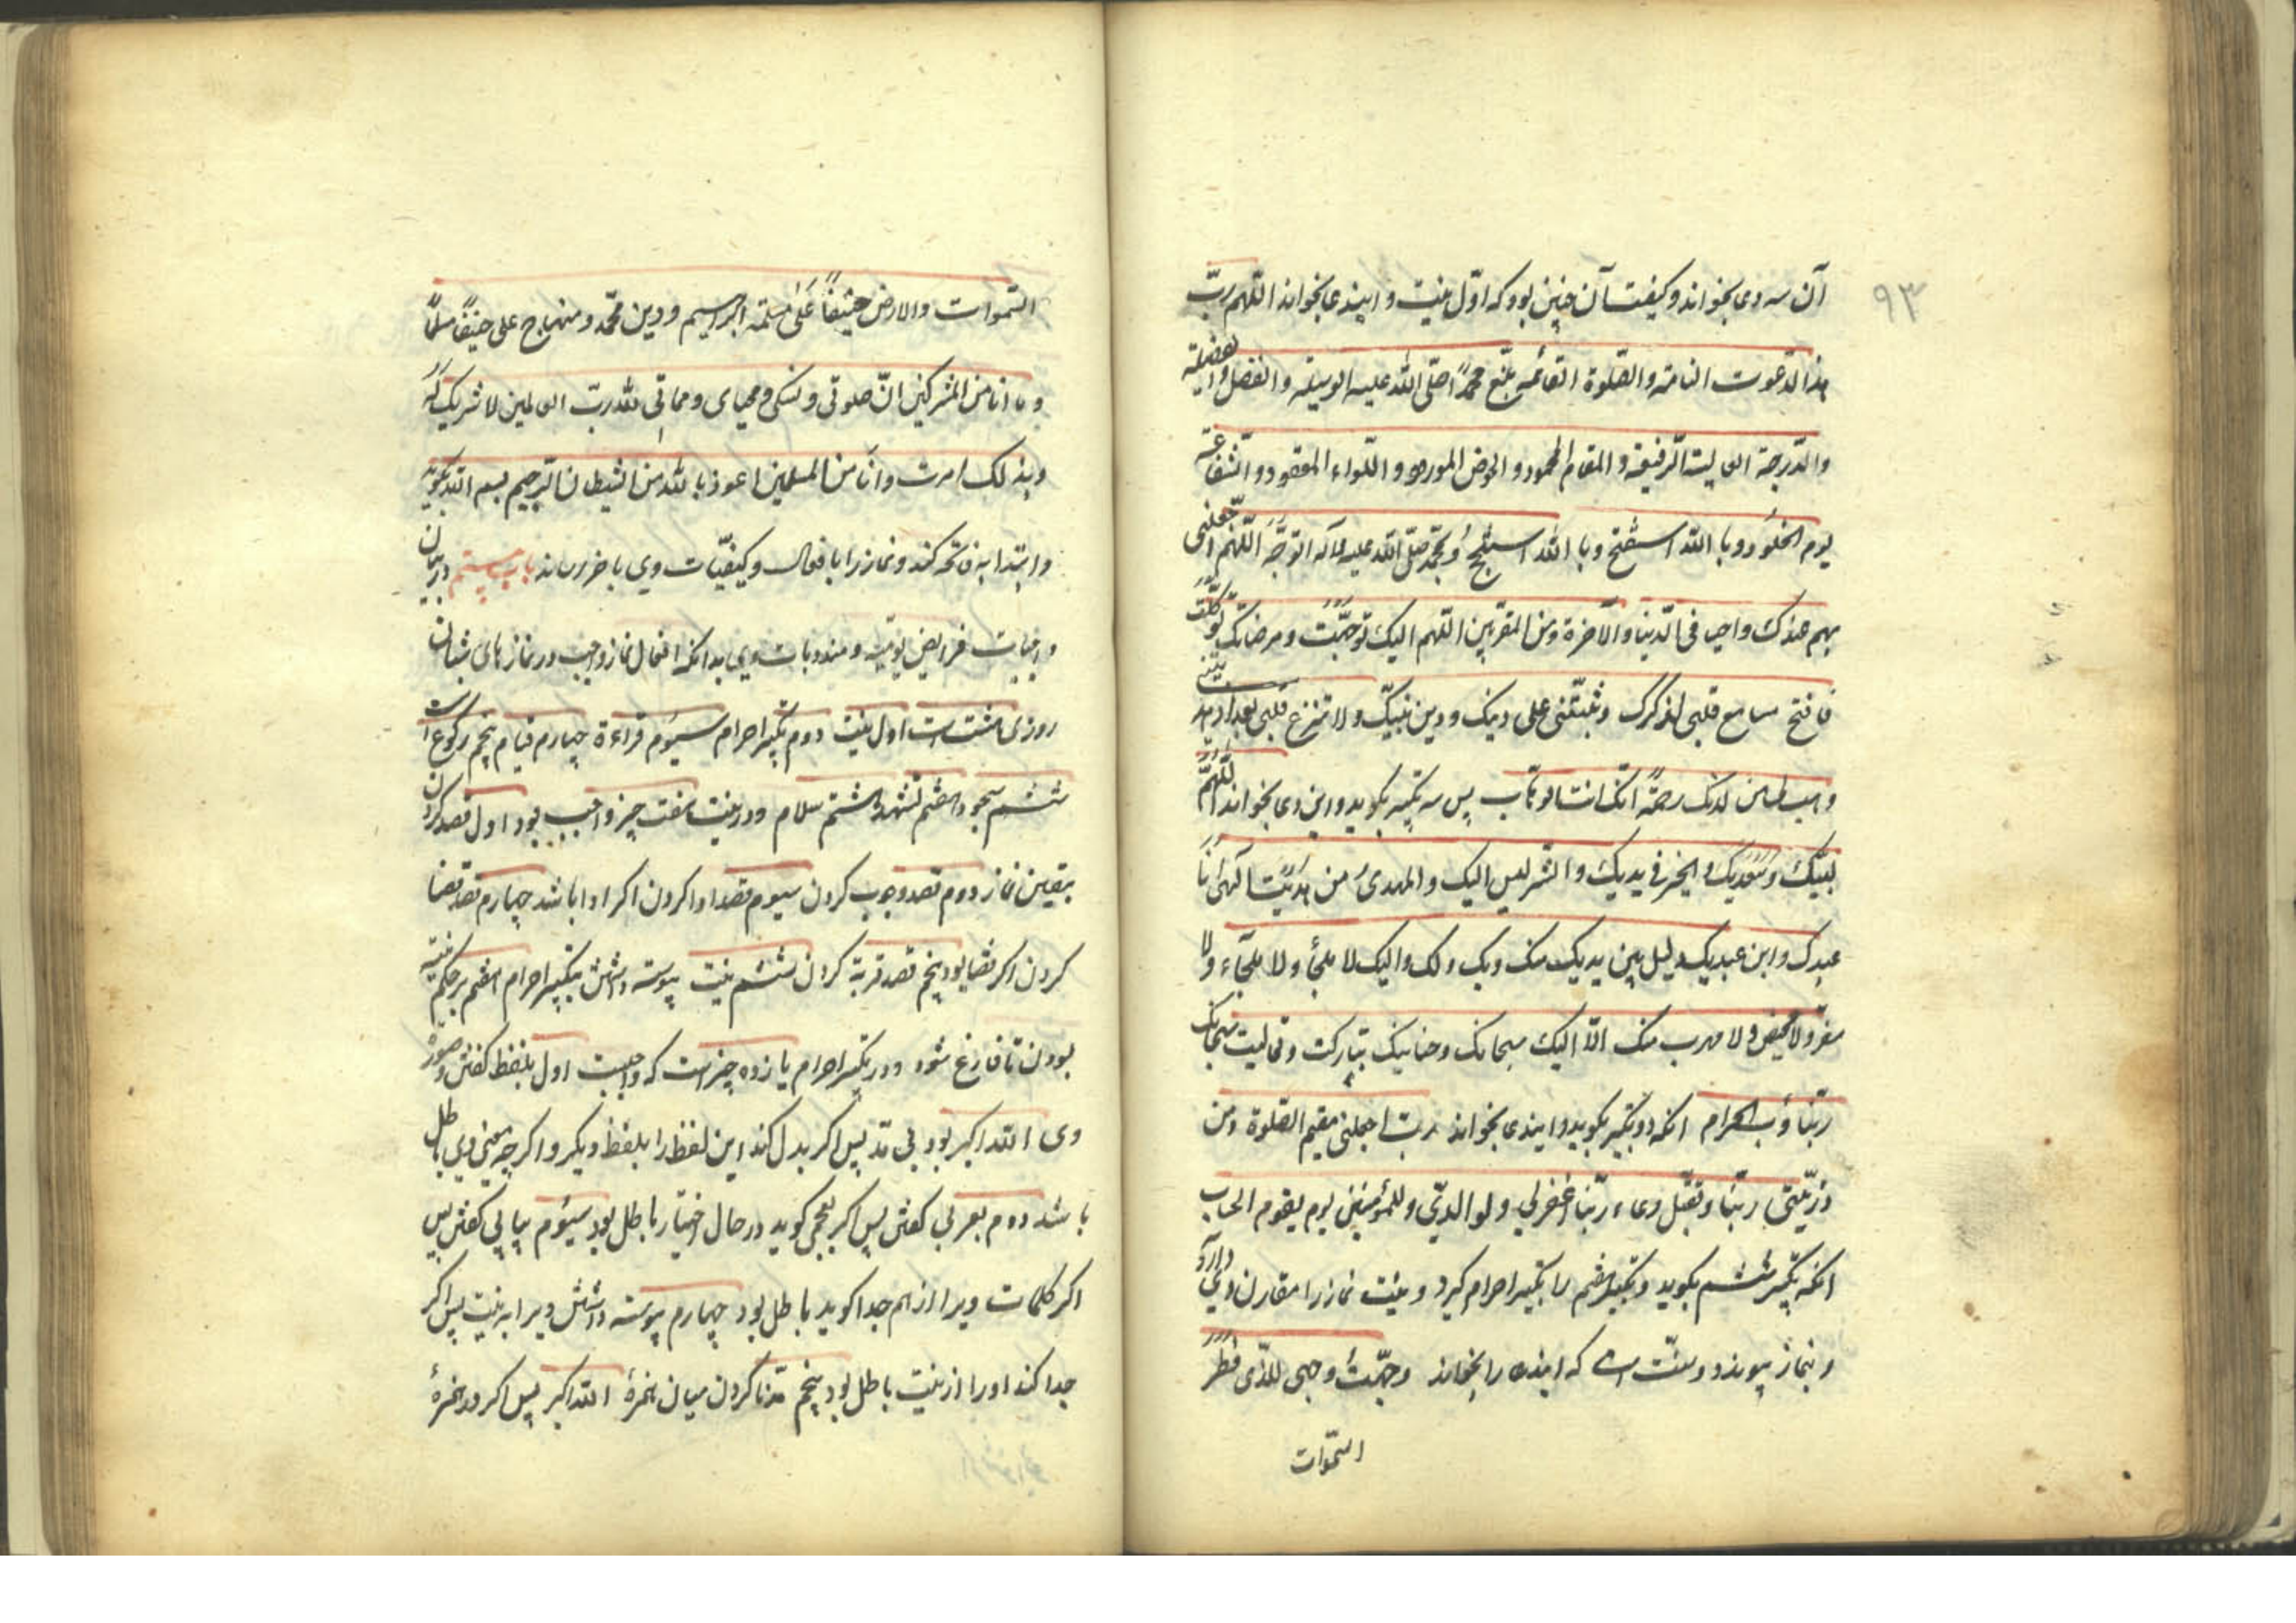 ۹۳
آن سه دعا بخواند و کیفیت آن چنین بود که اوّل نیت و ایندعا بخواند اللهم ربّ
هذا الدعوت التامة والصّلوة القائمه بلّغ محمداً صلّی الله علیه الوسیلة والفضل والفضیلة
والدّرجة العالیة الرفیعة و المقام المحمود و الحوض المورود و اللّواء المعقود و الشفاعة
یوم الخلود و با الله استفتح و با الله استنجح و بمحمّد صلّی الله علیه و آله اتوجّه اللّهم اجعلنی
بهم عندک وجیها فی الدّنیا والآخرة ومن المقربین اللهم الیک توجّهت ومرضاتک
فافتح مسامع قلبی لذکرک و ثبّتنی علی دینک و دین نبیّک ولا تنزغ قلبی بعد اذ هدیتنی
وهب لی من لدنک رحمةً انّک انت الوهّاب پس سه تکبیر بکوید و این دعا بخواند اللّهمّ
لبّیک وسعدیک والخیر فی یدیک والشّر لیس الیک والمهدیُ من هدیت الهی انا
عبدک وابن عبدیک ذلیل بین یدیک منک وبک ولک والیک لا ملجأ ولا ملجاء ولا
مفرّ ولا محیص ولا مهرب منک الّا الیک سبحانک وحنانیک تبارکت وتعالیت سبحانک
ربّنا وربّ الحرام انکه دو تکبیر بکوید و ایندعا بخواند ربّ اجعلنی مقیم الصّلوة ومن
ذرّیّتی ربّنا وتقبّل دعاء ربّنا اغفرلی ولوالدیّ وللمؤمنین یوم یقوم الحساب
انکه تکبیر ششم بکوید و تکبیر هفتم را تکبیر احرام کیرد و نیّت نماز را مقارن وی دارد
و بنماز پیوندد و سنّت است که اینده را بخواند وجّهت وجهی للذی فطر
السّموات
السّموات والارض حنیفاً علی ملّة ابراهیم و دین محمّد و منهاج علی حنیفاً مسلماً
و ما انا من المشرکین انّ صلوتی ونسکی ومحیای ومماتی لله ربّ العالمین لا شریک له
وبذلک امرت وانا من المسلمین اعوذ بالله من الشیطان الرّجیم بسم الله بکوید
وابتدا به فاتحه کند و نماز را با فعال و کیفیّات وی باخر رساند باب بیستم در بیان
واجبات فرایض یومیّه و مندوبات وی بدانکه افعال نماز واجب در نمازهای شبان
روزی هشتست اول نیت دوم تکبیر احرام سیوم قراءة چهارم قیام پنجم رکوع است
ششم سجود هفتم تشهد هشتم سلام و در نیت هفت چیز واجب بود اول قصد کردن
بیقین نماز دوم قصد وجوب کردن سیوم قصد ادا کردن اکر ادا باشد چهارم قصد قضا
کردن اکر قضا بود پنجم قصد قربة کردن ششم نیت پیوسته داشتن بتکبیر احرام هفتم بر حکم نیّت
بودن تا فارغ شود و در تکبیر احرام یازده چیز است که واجبست اول بلفظ کفتن و صورة
وی الله اکبر بود بی مد پس اکر بدل کند این لفظ را بلفظ دیکر و اکر چه بمعنی وی باطل
باشد دوم بعربی کفتن پس اکر بعجمی کوید در حال اختیار باطل بود سیوم پیاپی کفتن پس
اکر کلمات ویرا از هم جدا کوید باطل بود چهارم پیوسته داشتن ویرا به نیت پس اکر
جدا کند او را از نیت باطل بود پنجم مد نا کردن میان همزهٔ الله اکبر پس اکر مد همزهٔ